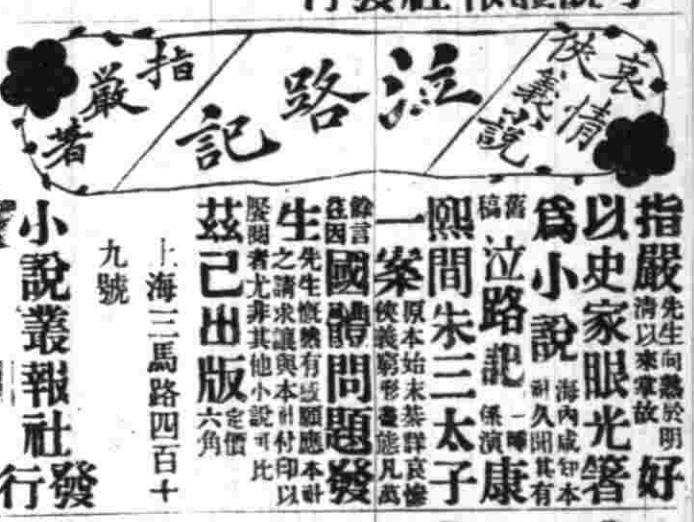 哀情
俠義小說
泣路記
指嚴著
指嚴先生向熟於明清以來掌故好
以史家眼光箸
爲小說海內咸知本社久聞其有
舊稿泣路記一 係演康
熙間朱三太子
一案原本始末綦詳哀慘俠義窮形盡態凡萬
餘言往因國體問題發
生先生慨然有感願應本社之請求讓與本社付印以
饜閱者尤非其他小說可比
茲已出版定價六角
上海三馬路四百十
九號
小說叢報社發行